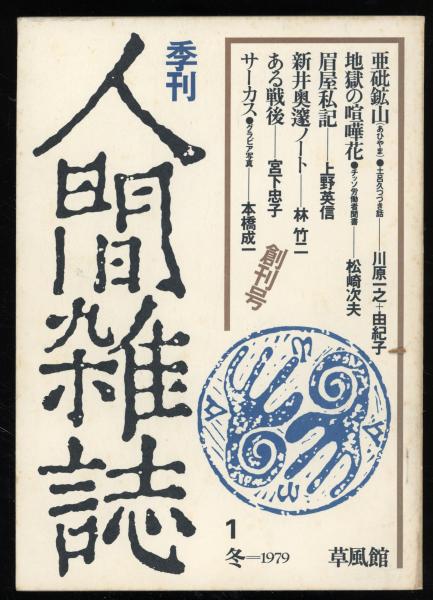 季刊
人間雑誌
亜砒鉱山(あひやま)●土呂久つづき話——川原一之+由紀子
地獄の喧嘩花●チッソ労働者聞書——松崎次夫
眉屋私記——上野英信
新井奥邃ノート——林竹二
ある戦後——宮下忠子
サーカス●グラビア写真——本橋成一
創刊号
1
冬=1979
草風館